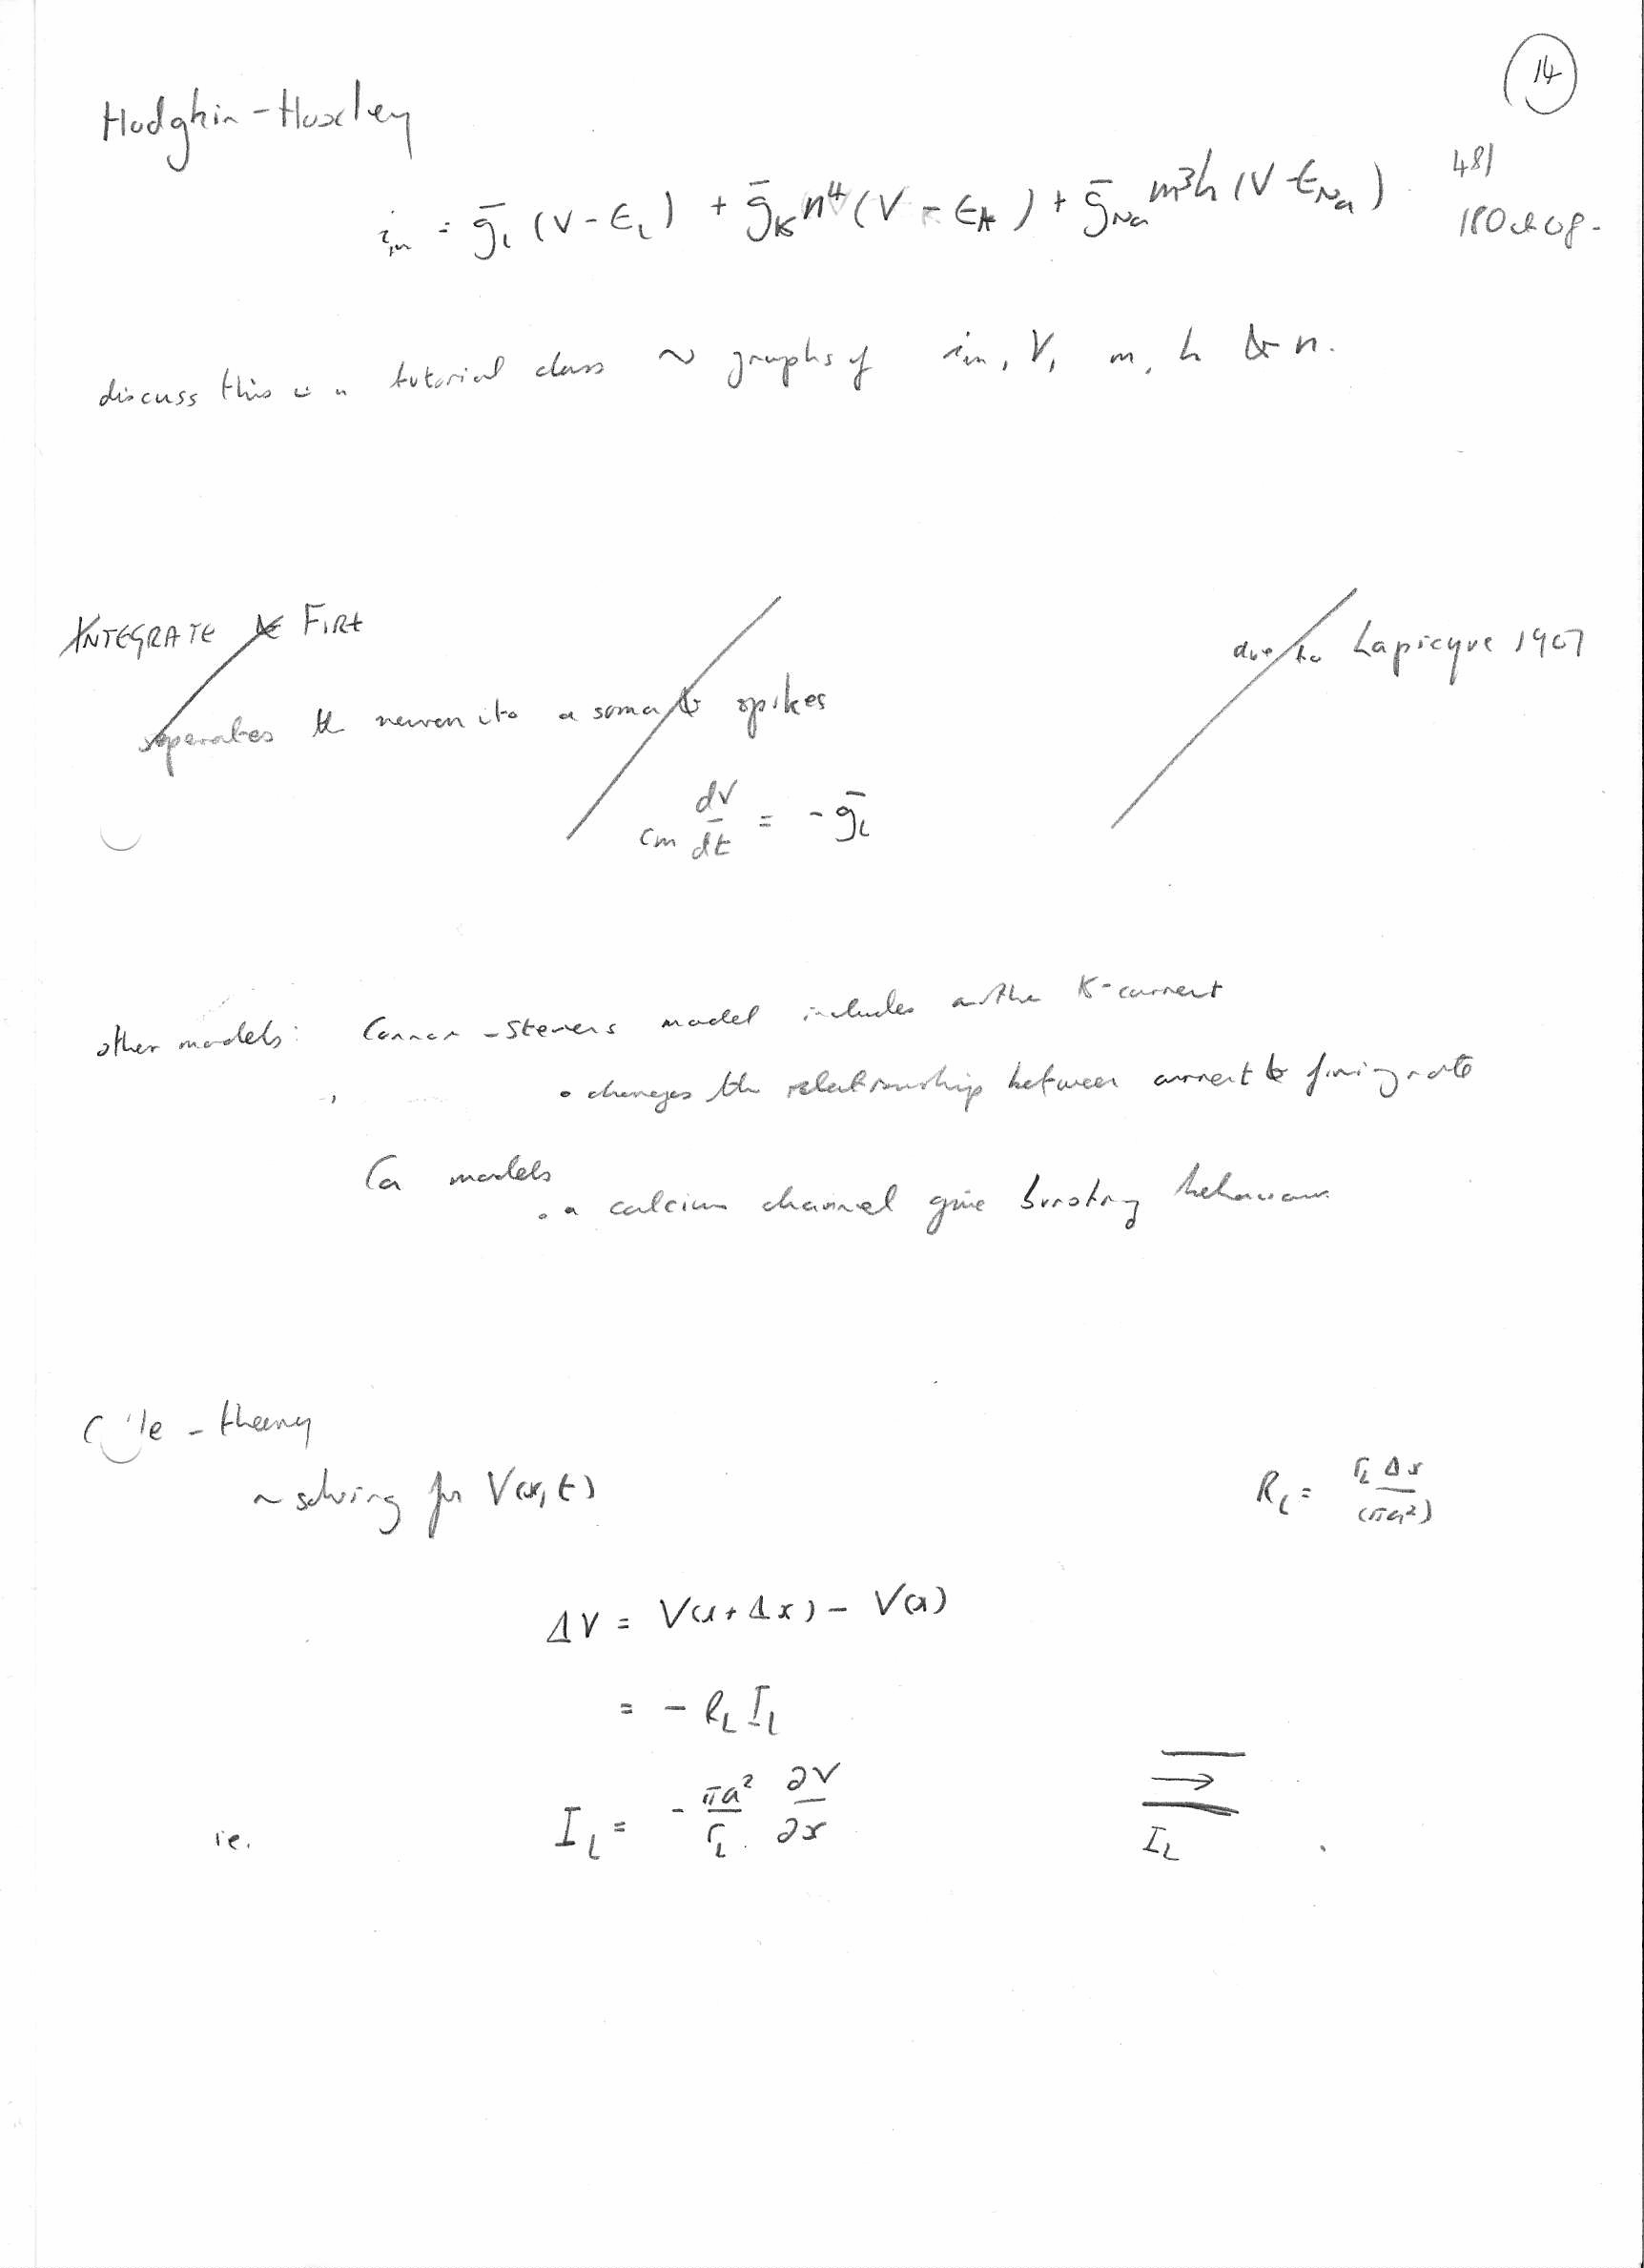 14
Hodgkin-Huxley
i_m = ḡ_L (V - E_L) + ḡ_K n⁴ (V - E_K) + ḡ_Na m³h (V - E_Na)
481
discuss this in a tutorial class ~ graphs of i_m, V, m, h & n.
INTEGRATE & FIRE
due to Lapicque 1907
seperates the neuron into a soma & spikes
c_m dV/dt = -ḡ_L
other models: Connor-Stevens model includes another K-current
• changes the relationship between current & firing rate
Ca models
• a calcium channel give bursting behaviour
theory
~ solving for V(x,t)
R_L = r_L Δx / (πa²)
ΔV = V(x+Δx) - V(x)
= - R_L I_L
ie. I_L = - πa²/r_L ∂V/∂x
→
I_L